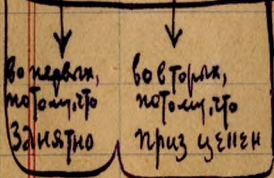 во первых,
потому, что
занятно
во вторых,
потому, что
приз ценен